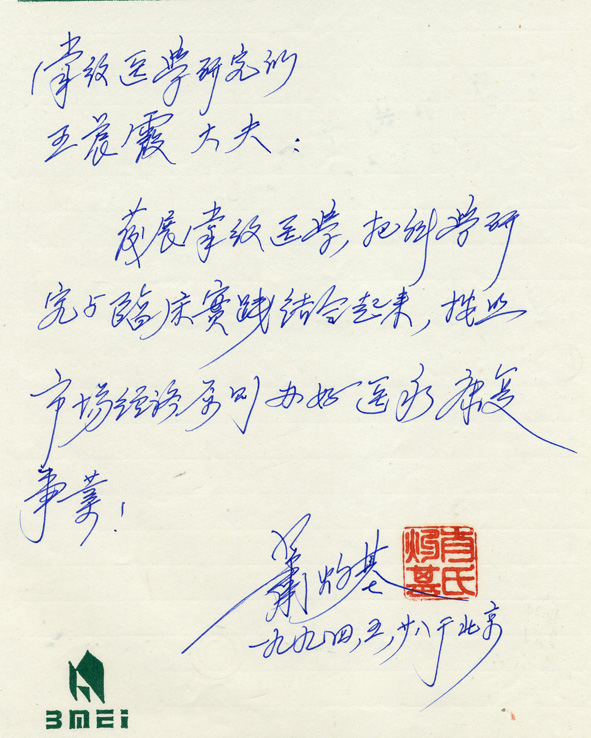 掌纹医学研究所
王晨霞大夫：
发展掌纹医学，把科学研
究与临床实践结合起来，按照
市场经济原则办好医疗康复
事业！
萧灼基
肖氏灼基
一九九四，五，廿八于北京
BMEI